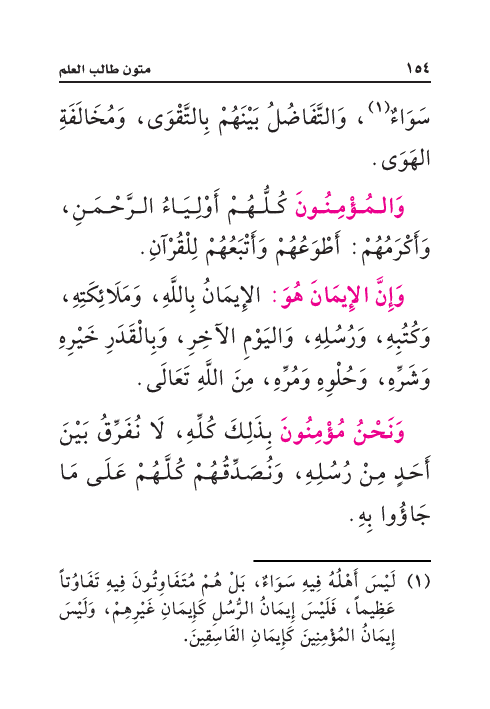 ١٥٤ متون طالب العلم
سَوَاءٌ(١)، وَالتَّفَاضُلُ بَيْنَهُمْ بِالتَّقْوَى، وَمُخَالَفَةِ
الهَوَى.
وَالمُؤْمِنُونَ كُلُّهُمْ أَوْلِيَاءُ الرَّحْمَنِ،
وَأَكْرَمُهُمْ: أَطْوَعُهُمْ وَأَتْبَعُهُمْ لِلْقُرْآنِ.
وَإِنَّ الإِيمَانَ هُوَ: الإِيمَانُ بِاللَّهِ، وَمَلَائِكَتِهِ،
وَكُتُبِهِ، وَرُسُلِهِ، وَاليَوْمِ الآخِرِ، وَبِالْقَدَرِ خَيْرِهِ
وَشَرِّهِ، وَحُلْوِهِ وَمُرِّهِ، مِنَ اللَّهِ تَعَالَى.
وَنَحْنُ مُؤْمِنُونَ بِذَلِكَ كُلِّهِ، لَا نُفَرِّقُ بَيْنَ
أَحَدٍ مِنْ رُسُلِهِ، وَنُصَدِّقُهُمْ كُلَّهُمْ عَلَى مَا
جَاؤُوا بِهِ.
(١) لَيْسَ أَهْلُهُ فِيهِ سَوَاءٌ، بَلْ هُمْ مُتَفَاوِتُونَ فِيهِ تَفَاوُتاً
عَظِيماً، فَلَيْسَ إِيمَانُ الرُّسُلِ كَإِيمَانِ غَيْرِهِمْ، وَلَيْسَ
إِيمَانُ المُؤْمِنِينَ كَإِيمَانِ الفَاسِقِينَ.